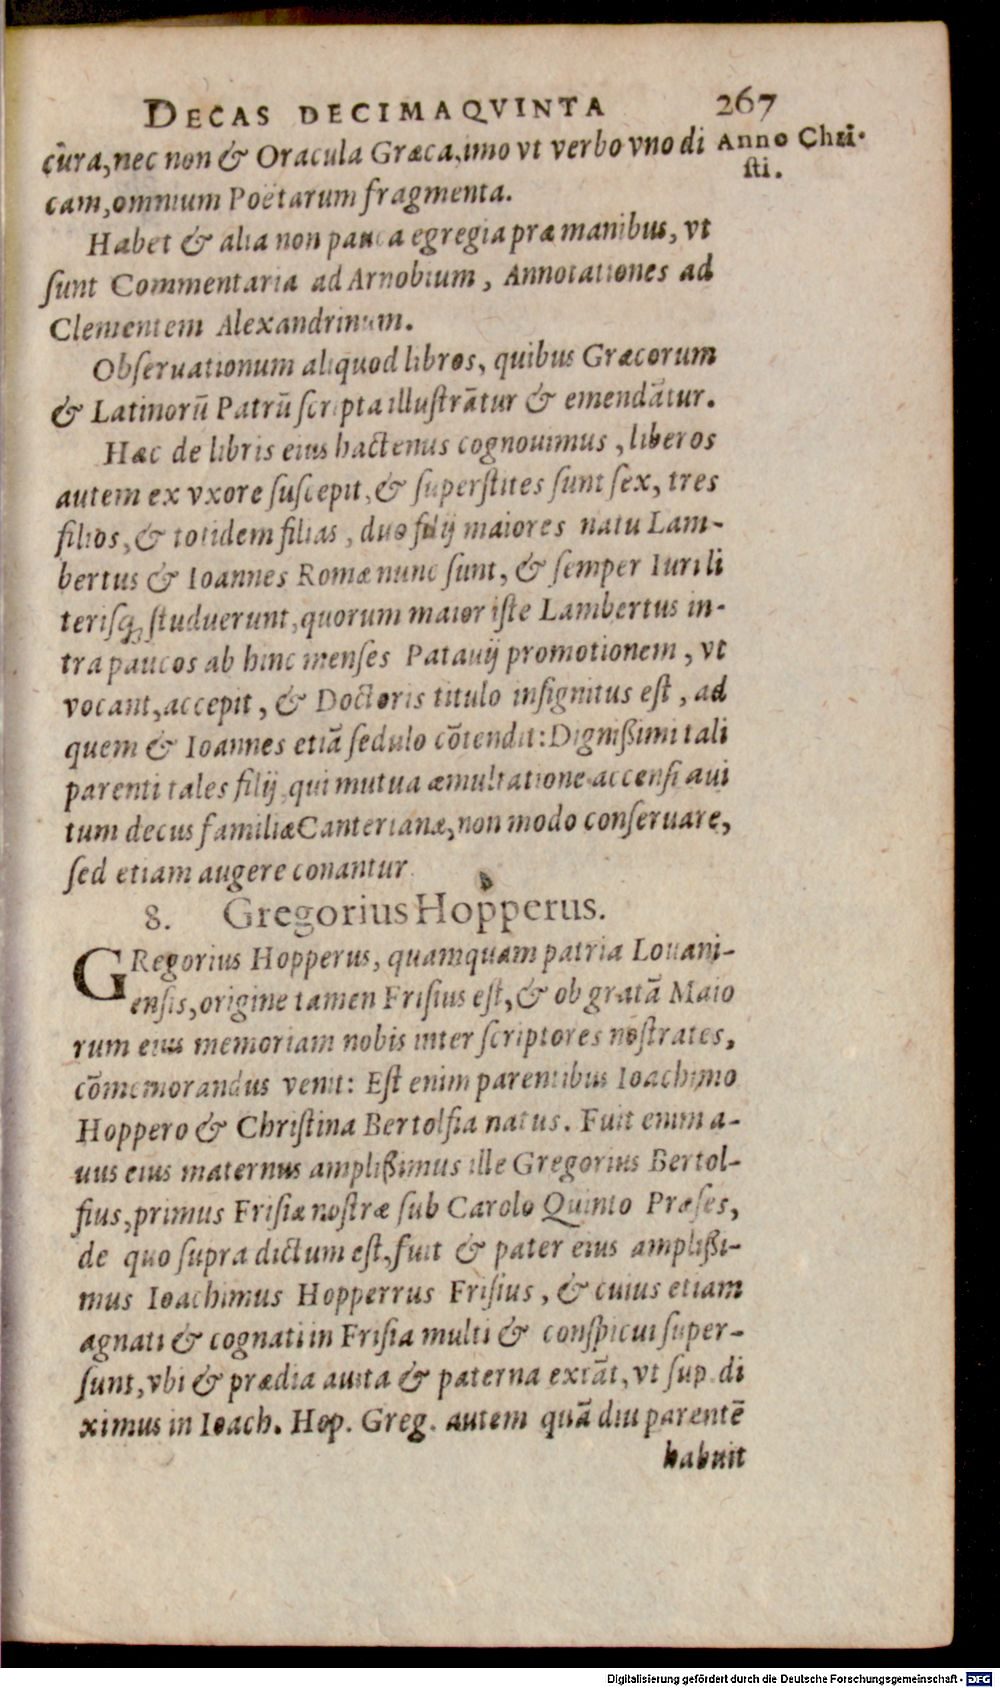 DECAS DECIMAQVINTA 267
cura, nec non & Oracula Græca, imo vt verbo vno di
Anno Chri-
sti.
cam, omnium Poëtarum fragmenta.
Habet & alia non pauca egregia præ manibus, vt
ſunt Commentaria ad Arnobium, Annotationes ad
Clementem Alexandrinum.
Obſeruationum aliquod libros, quibus Græcorum
& Latinorū Patrū ſcripta illuſtrātur & emendātur.
Hæc de libris eius hactenus cognouimus, liberos
autem ex vxore ſuſcepit, & ſuperſtites ſunt ſex, tres
filios, & totidem filias, duo filij maiores natu Lam-
bertus & Ioannes Romæ nunc ſunt, & ſemper Iuri li
teriſq; ſtuduerunt, quorum maior iſte Lambertus in-
tra paucos ab hinc menſes Patauij promotionem, vt
vocant, accepit, & Doctoris titulo inſignitus eſt, ad
quem & Ioannes etiā ſedulo cōtendit: Digniſſimi tali
parenti tales filij, qui mutua æmultatione accenſi aui
tum decus familiæ Canterianæ, non modo conſeruare,
ſed etiam augere conantur
8. Gregorius Hopperus.
GRegorius Hopperus, quamquam patria Louani-
enſis, origine tamen Friſius eſt, & ob gratā Maio
rum eius memoriam nobis inter ſcriptores noſtrates,
cōmemorandus venit: Eſt enim parentibus Ioachimo
Hoppero & Chriſtina Bertolfia natus. Fuit enim a-
uus eius maternus ampliſſimus ille Gregorius Bertol-
fius, primus Friſiæ noſtræ ſub Carolo Quinto Præſes,
de quo ſupra dictum eſt, fuit & pater eius ampliſſi-
mus Ioachimus Hopperrus Friſius, & cuius etiam
agnati & cognati in Friſia multi & conſpicui ſuper-
ſunt, vbi & prædia auita & paterna extāt, vt ſup. di
ximus in Ioach. Hop. Greg. autem quā diu parentē
habuit
Digitalisierung gefördert durch die Deutsche Forschungsgemeinschaft - DFG